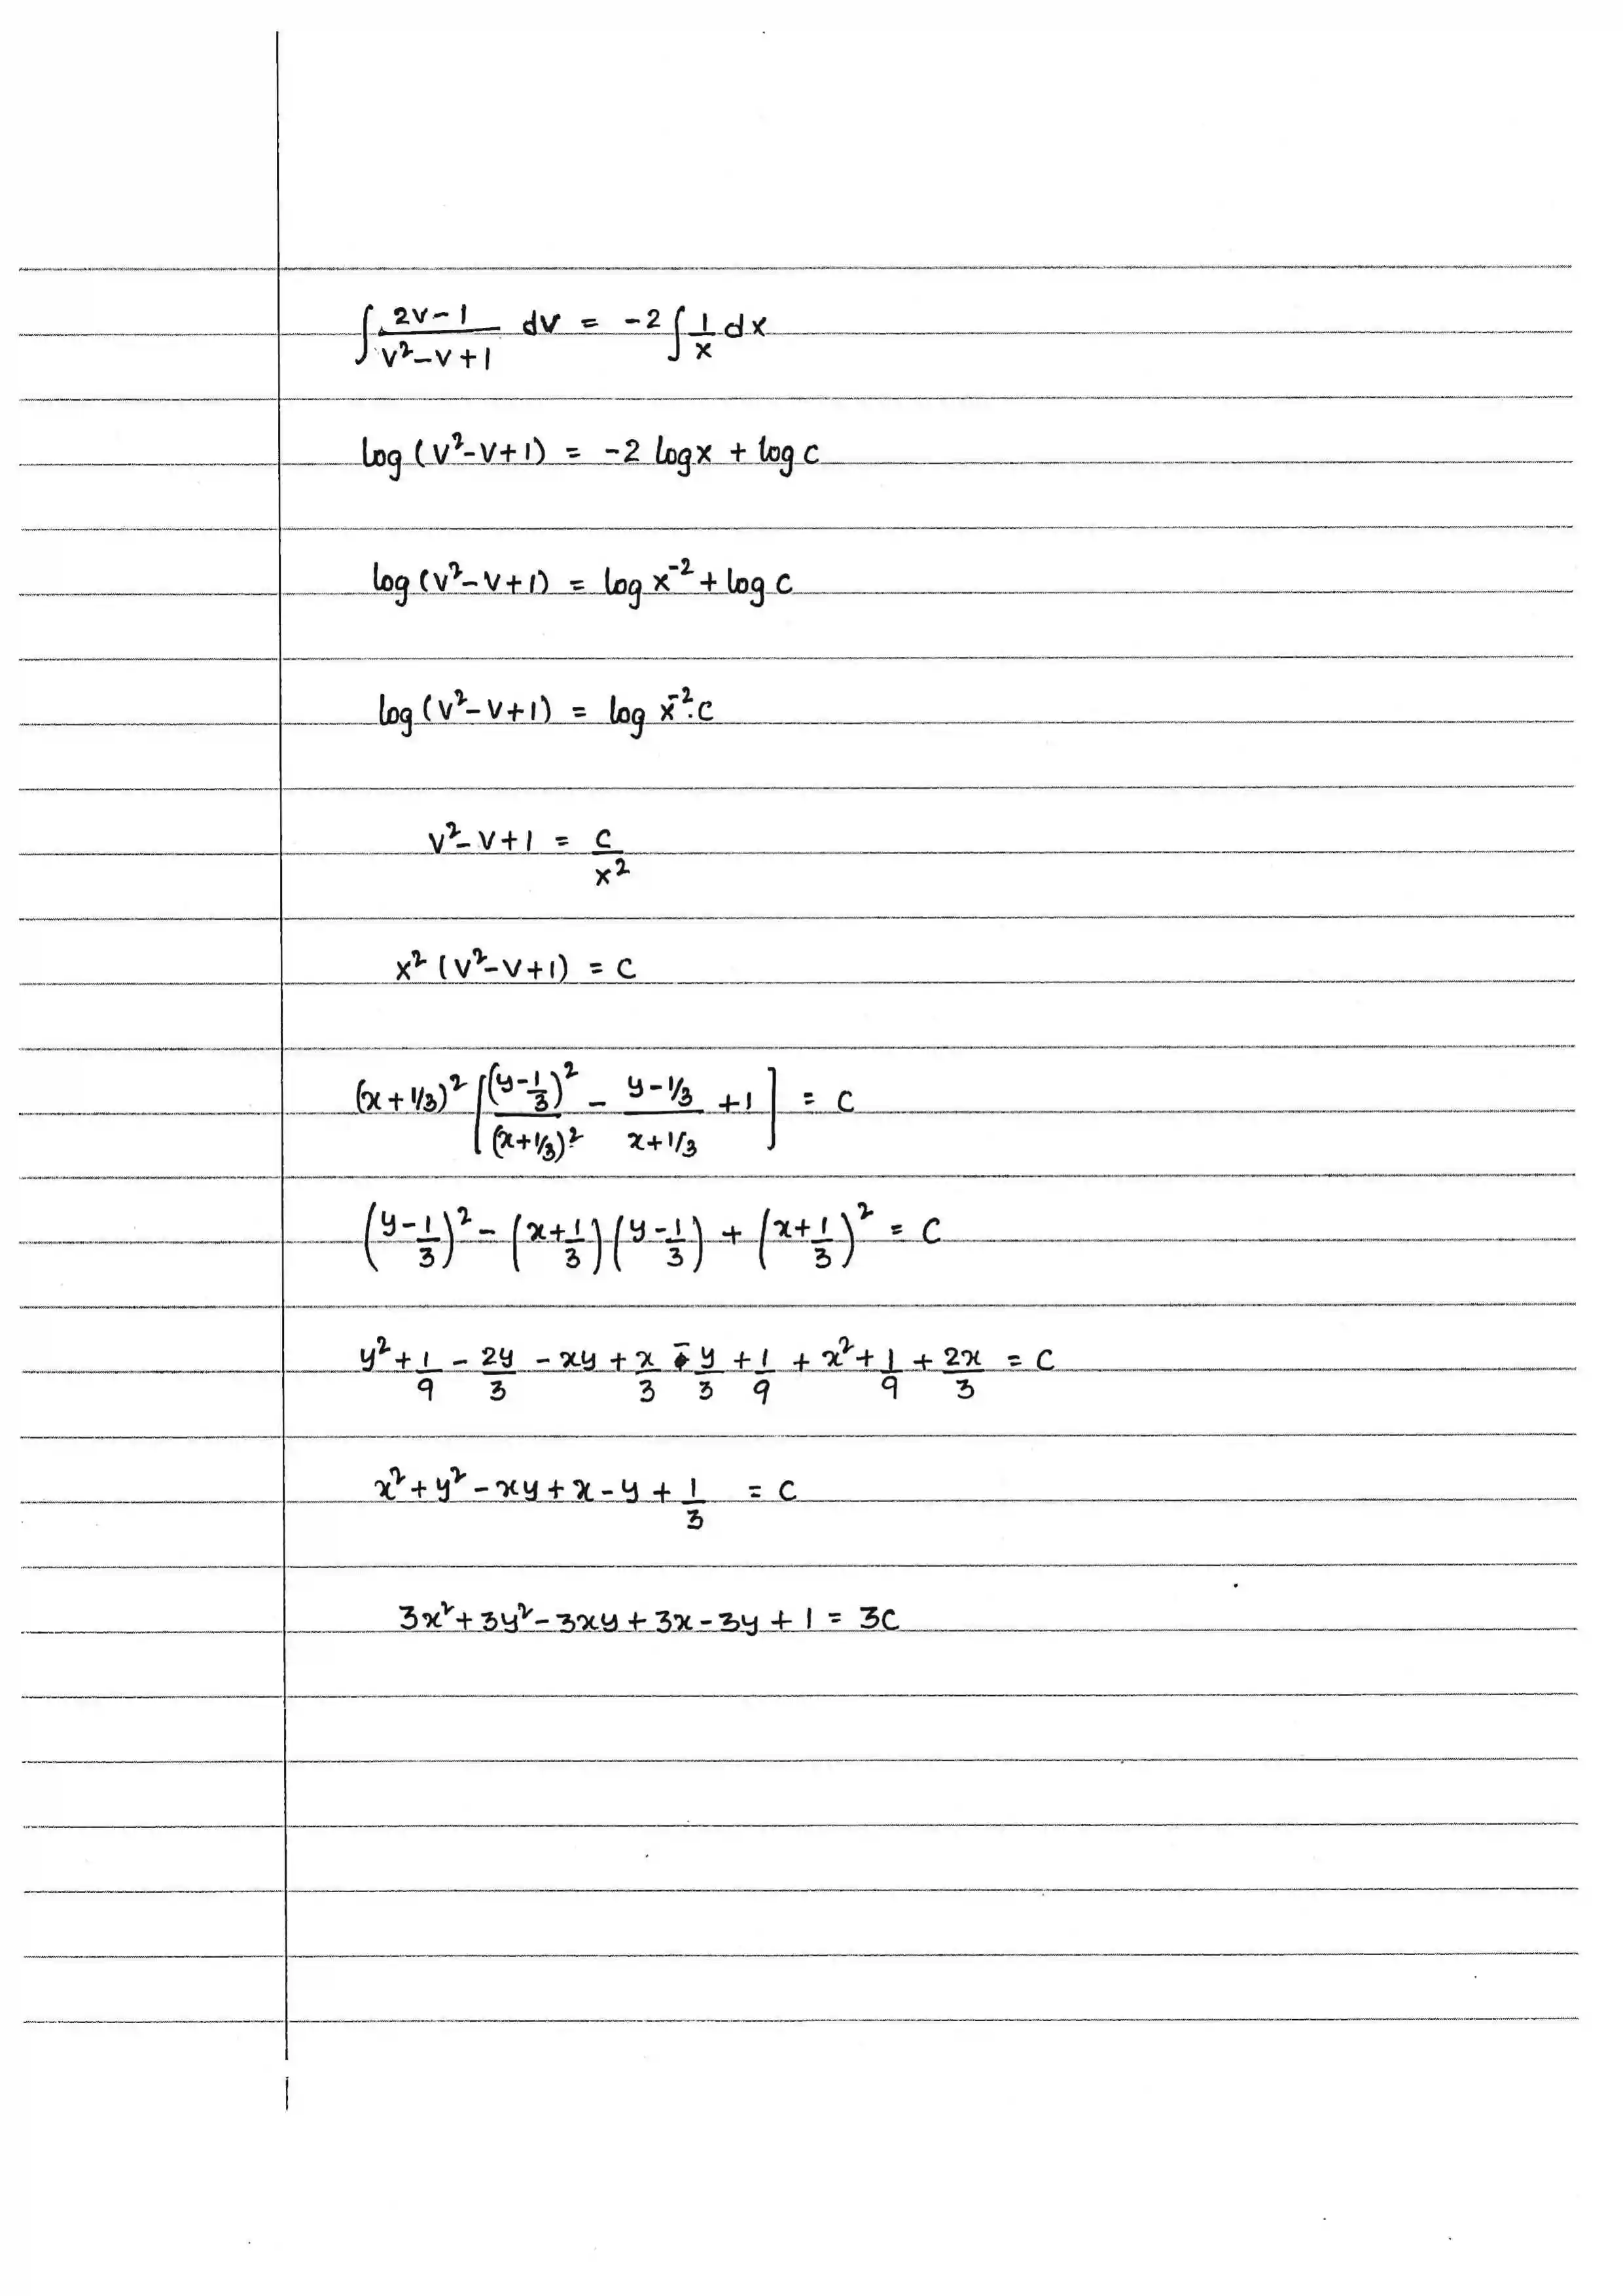 ∫ (2v-1)/(v²-v+1) dv = -2 ∫ 1/x dx
log (v²-v+1) = -2 log x + log c
log (v²-v+1) = log x⁻² + log c
log (v²-v+1) = log x⁻².c
v²-v+1 = c/x²
x² (v²-v+1) = c
(x+1/3)² [(y-1/3)²/(x+1/3)² - (y-1/3)/(x+1/3) +1] = c
(y-1/3)² - (x+1/3)(y-1/3) + (x+1/3)² = c
y² + 1/9 - 2y/3 - xy + x/3 - y/3 + 1/9 + x² + 1/9 + 2x/3 = c
x² + y² - xy + x - y + 1/3 = c
3x² + 3y² - 3xy + 3x - 3y + 1 = 3c